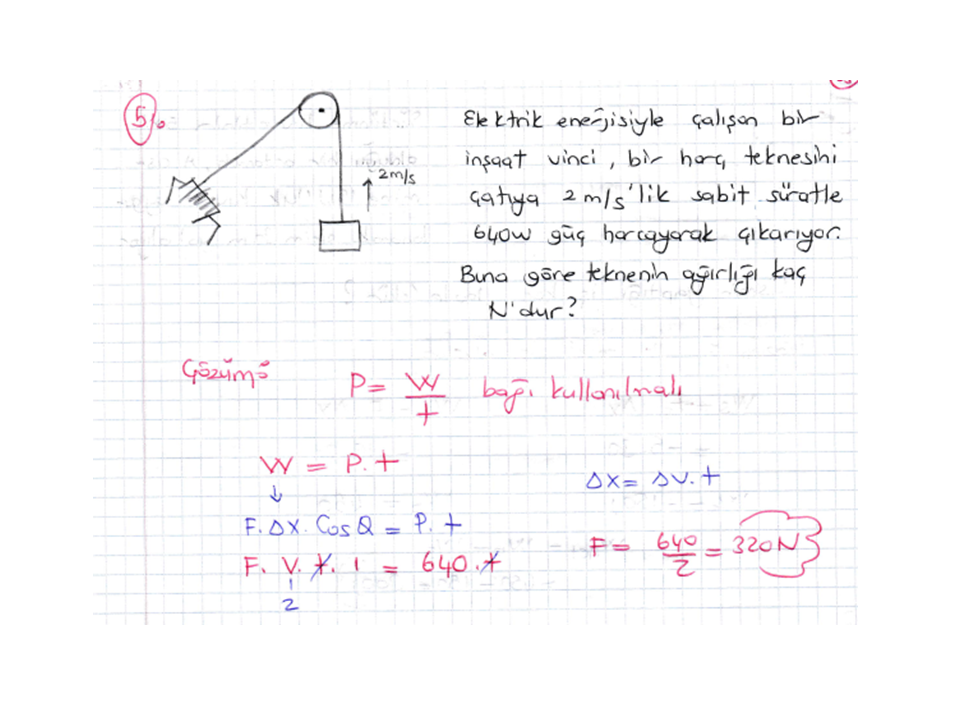 5)
2m/s
Elektrik enerjisiyle çalışan bir
inşaat vinci, bir harç teknesini
çatıya 2 m/s'lik sabit süratle
640W güç harcayarak çıkarıyor.
Buna göre teknenin ağırlığı kaç
N'dur?
Çözüm:
P = W/t bağı kullanılmalı
W = P.t
Δx = Δv.t
F.Δx.Cos Q = P.t
F. V. t. 1 = 640.t
2
F = 640/2 = 320N